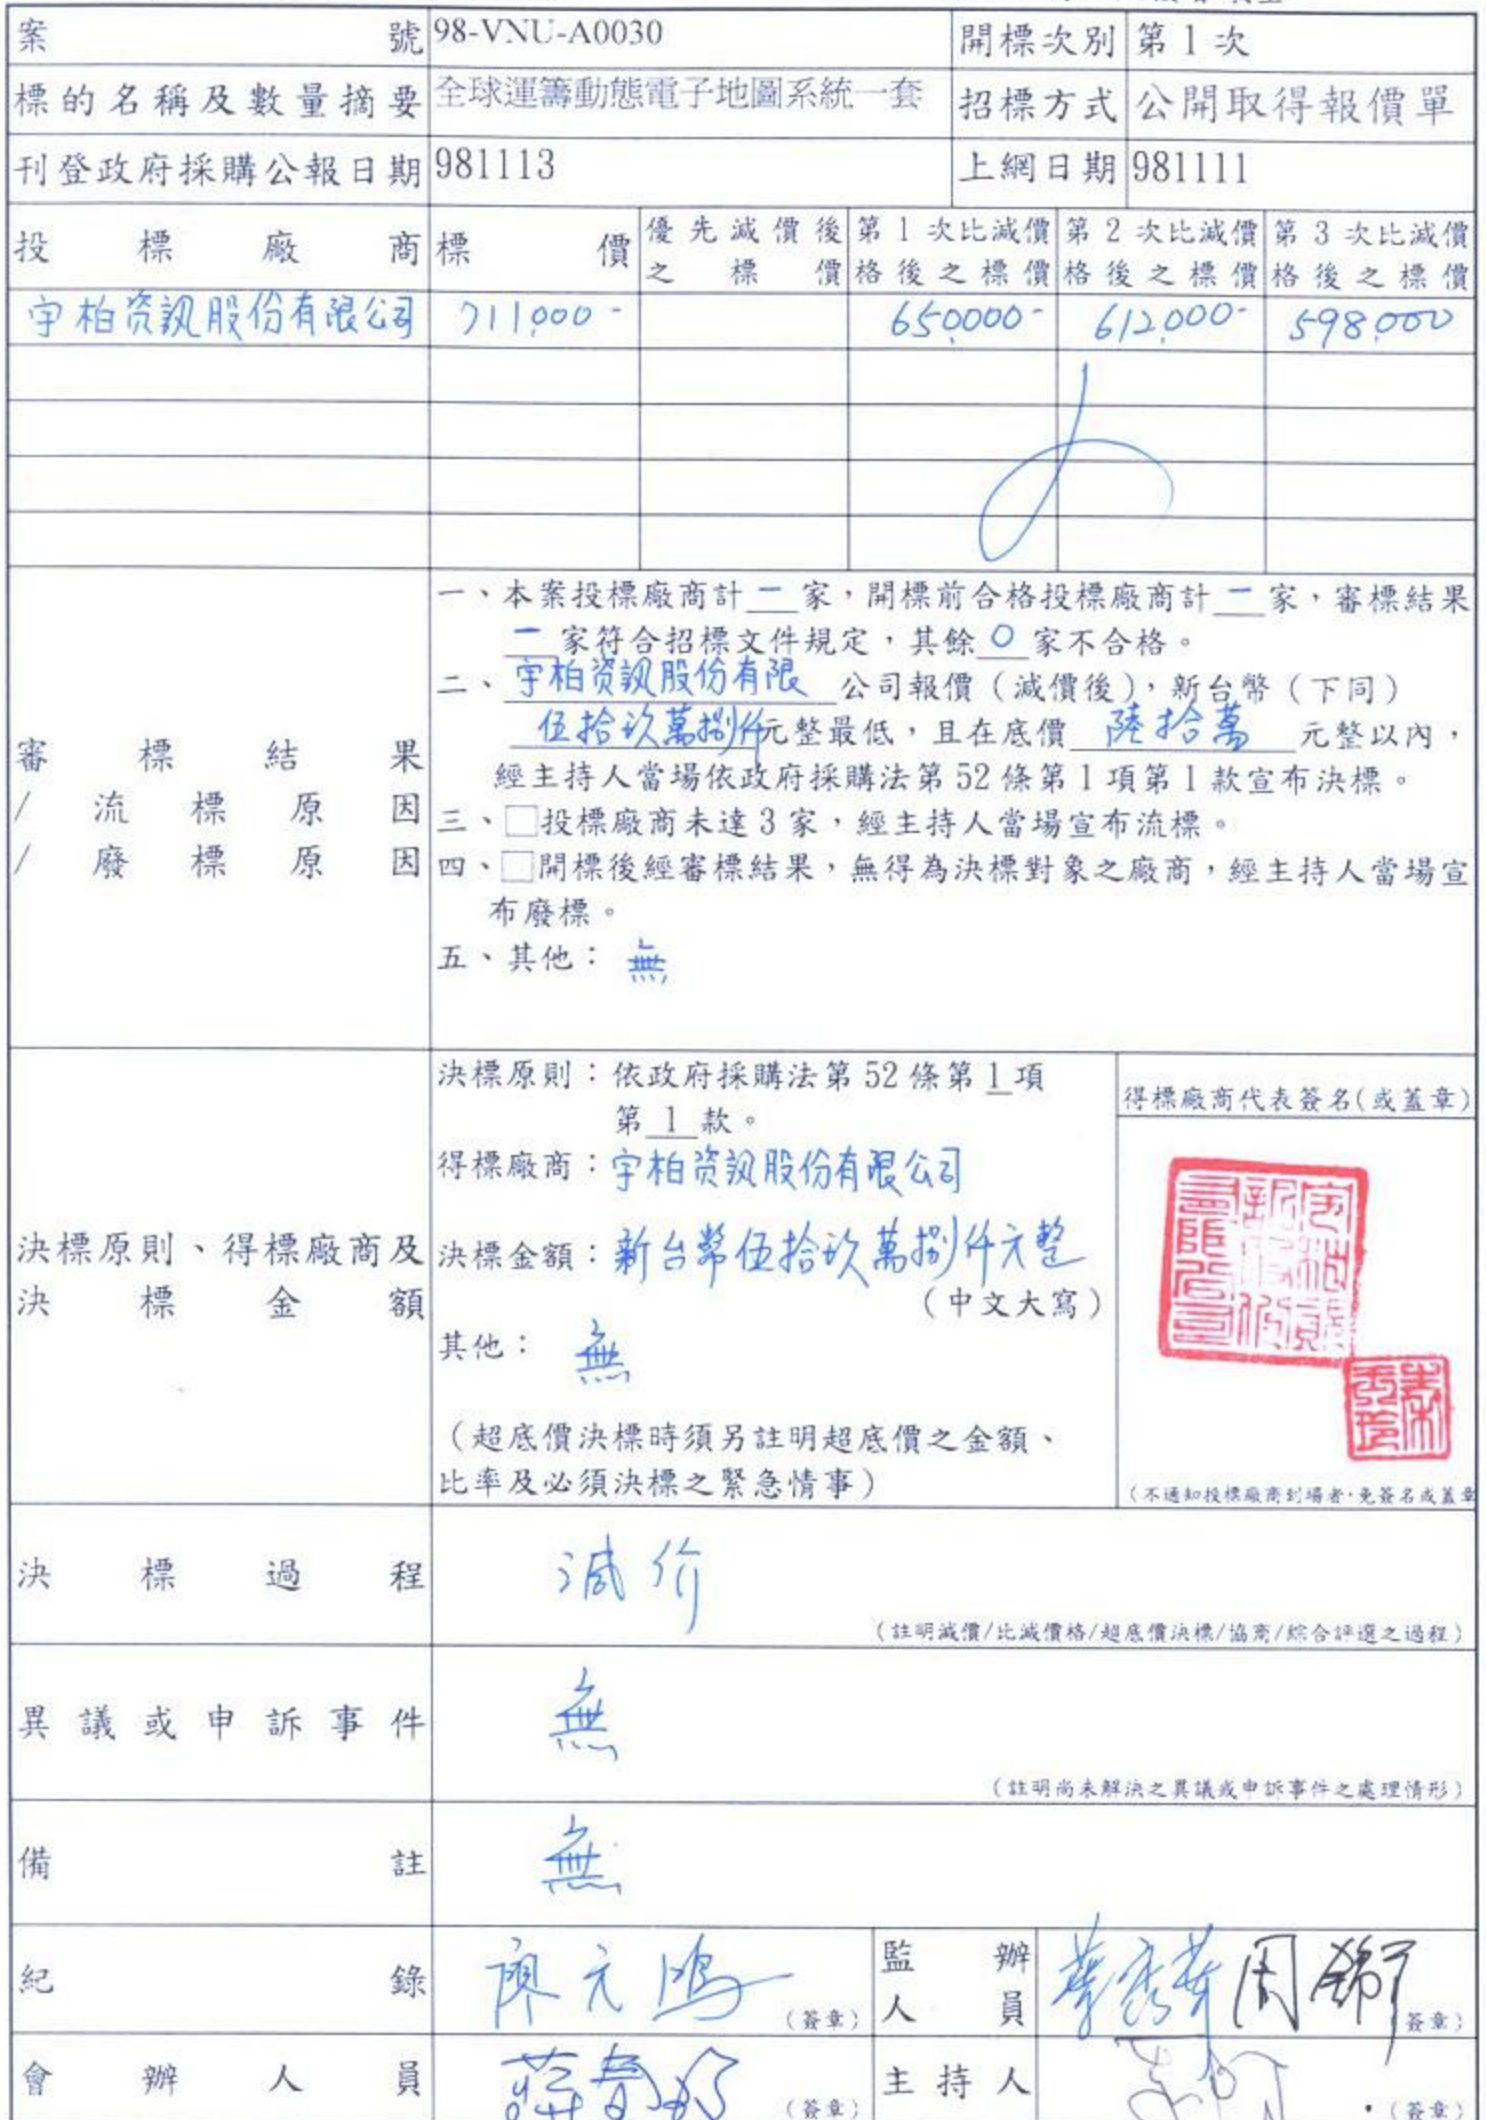 案號 98-VNU-A0030 開標次別 第1次
標的名稱及數量摘要 全球運籌動態電子地圖系統一套 招標方式 公開取得報價單
刊登政府採購公報日期 981113 上網日期 981111
投標廠商 標價 優先減價後之標價 第1次比減價格後之標價 第2次比減價格後之標價 第3次比減價格後之標價
宇柏资訊股份有限公司 711,000- 650,000- 612,000- 598,000
審標結果
/流標原因
/廢標原因
一、本案投標廠商計一家,開標前合格投標廠商計一家,審標結果
一家符合招標文件規定,其餘0家不合格。
二、宇柏资訊股份有限公司報價(減價後),新台幣(下同)
伍拾玖萬捌仟元整最低,且在底價陸拾萬元整以內,
經主持人當場依政府採購法第52條第1項第1款宣布決標。
三、□投標廠商未達3家,經主持人當場宣布流標。
四、□開標後經審標結果,無得為決標對象之廠商,經主持人當場宣
布廢標。
五、其他:無
決標原則、得標廠商及
決標金額
決標原則:依政府採購法第52條第1項
第1款。
得標廠商:宇柏资訊股份有限公司
決標金額:新台幣伍拾玖萬捌仟元整
(中文大寫)
其他:無
(超底價決標時須另註明超底價之金額、
比率及必須決標之緊急情事)
得標廠商代表簽名(或蓋章)
(不通知投標廠商到場者,免簽名或蓋章
決標過程 減价
(註明減價/比減價格/超底價決標/協商/綜合評選之過程)
異議或申訴事件 無
(註明尚未解決之異議或申訴事件之處理情形)
備註 無
紀錄 廖元鴻 (簽章) 監辦人員 (簽章)
會辦人員 (簽章) 主持人 (簽章)